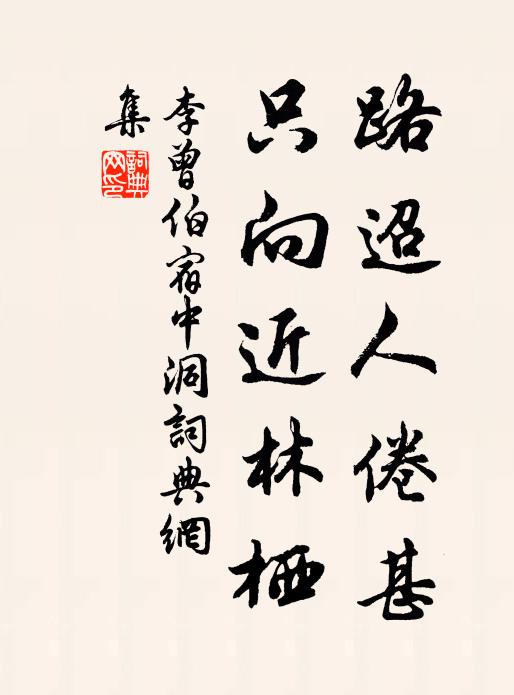 路迢人倦甚
只向近林栖
李曾伯宿中洞詞典網
集
詞典网印